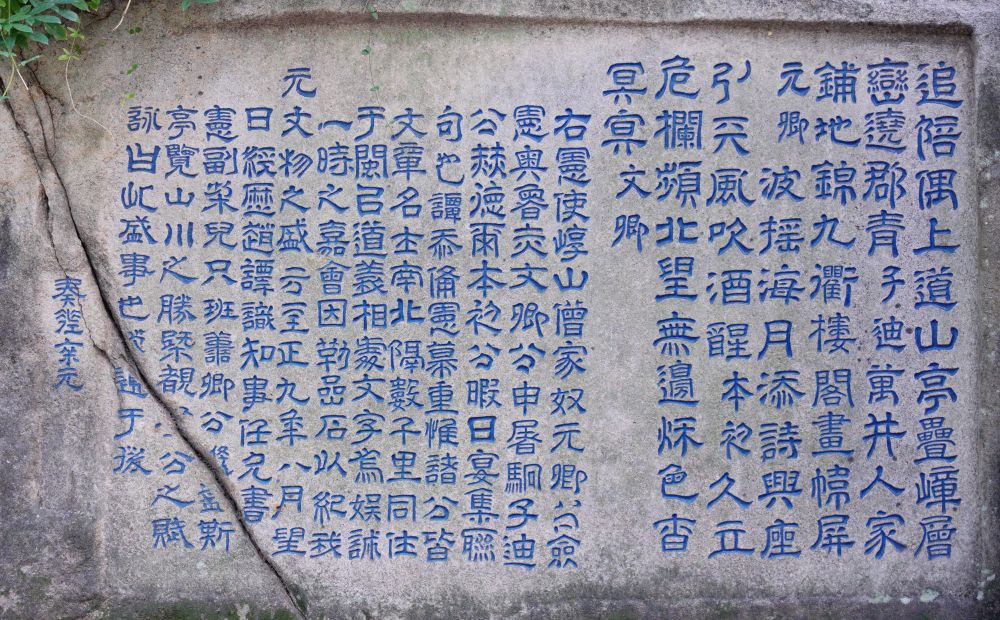 追陪偶上道山亭疊嶂層
巒遶郡青子迪萬井人家
鋪地錦九衢樓閣畫幃屏
元卿 波搖海月添詩興座
引天風吹酒醒本初久立
危欄頻北望無邊秋色杳
冥冥文卿
右憲使崞山僧家奴元卿公僉
憲奧魯赤文卿公申屠駉子迪
公赫德爾本初公暇日宴集聯
句也譚忝僃憲幕重惟諸公皆
文章名士南北隔數千里同仕
于閩以道義相處文字為娛誠
一時之嘉會因勒嵒石以紀我
元文物之盛云至正九年八月望
日經歷趙譚識知事任允書
憲副朶兒只班善卿公 斯
亭覽山川之勝槩觀 公之賦
詠曰此盛事也 于後
奏差 元